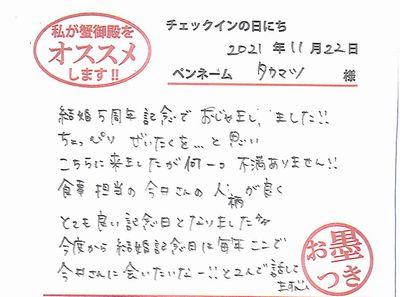 私が蟹御殿を
オススメ
します!!
チェックインの日にち
2021年11月22日
ペンネーム タカマツ 様
結婚5周年記念でおじゃまし,ました!!
ちょっぴりぜいたくを…と思い
こちらに来ましたが何一つ不満ありません!!
食事担当の今井さんの人柄が良く
とても良い記念日となりました
今度から結婚記念日に毎年ここで
今井さんに会いたいなー!!と2人で話して
ます
お墨
つき